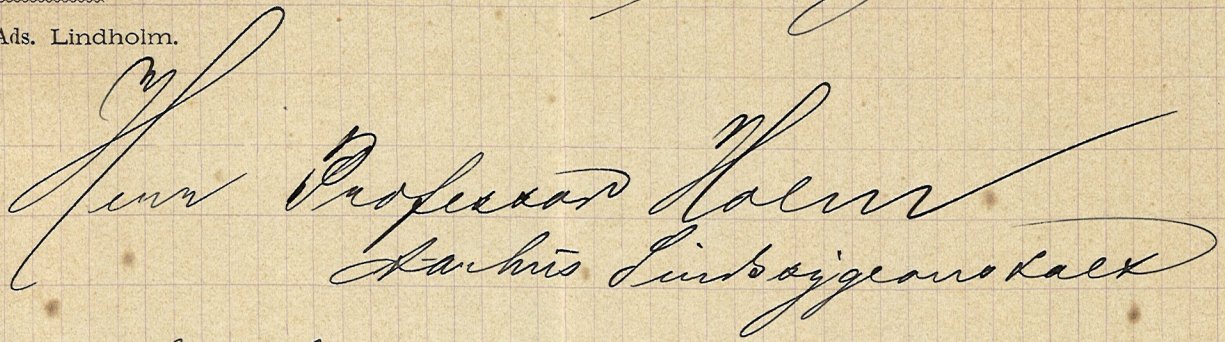 Ads. Lindholm.
Herr Professor Holm
Aarhus Sindssygeanstalt